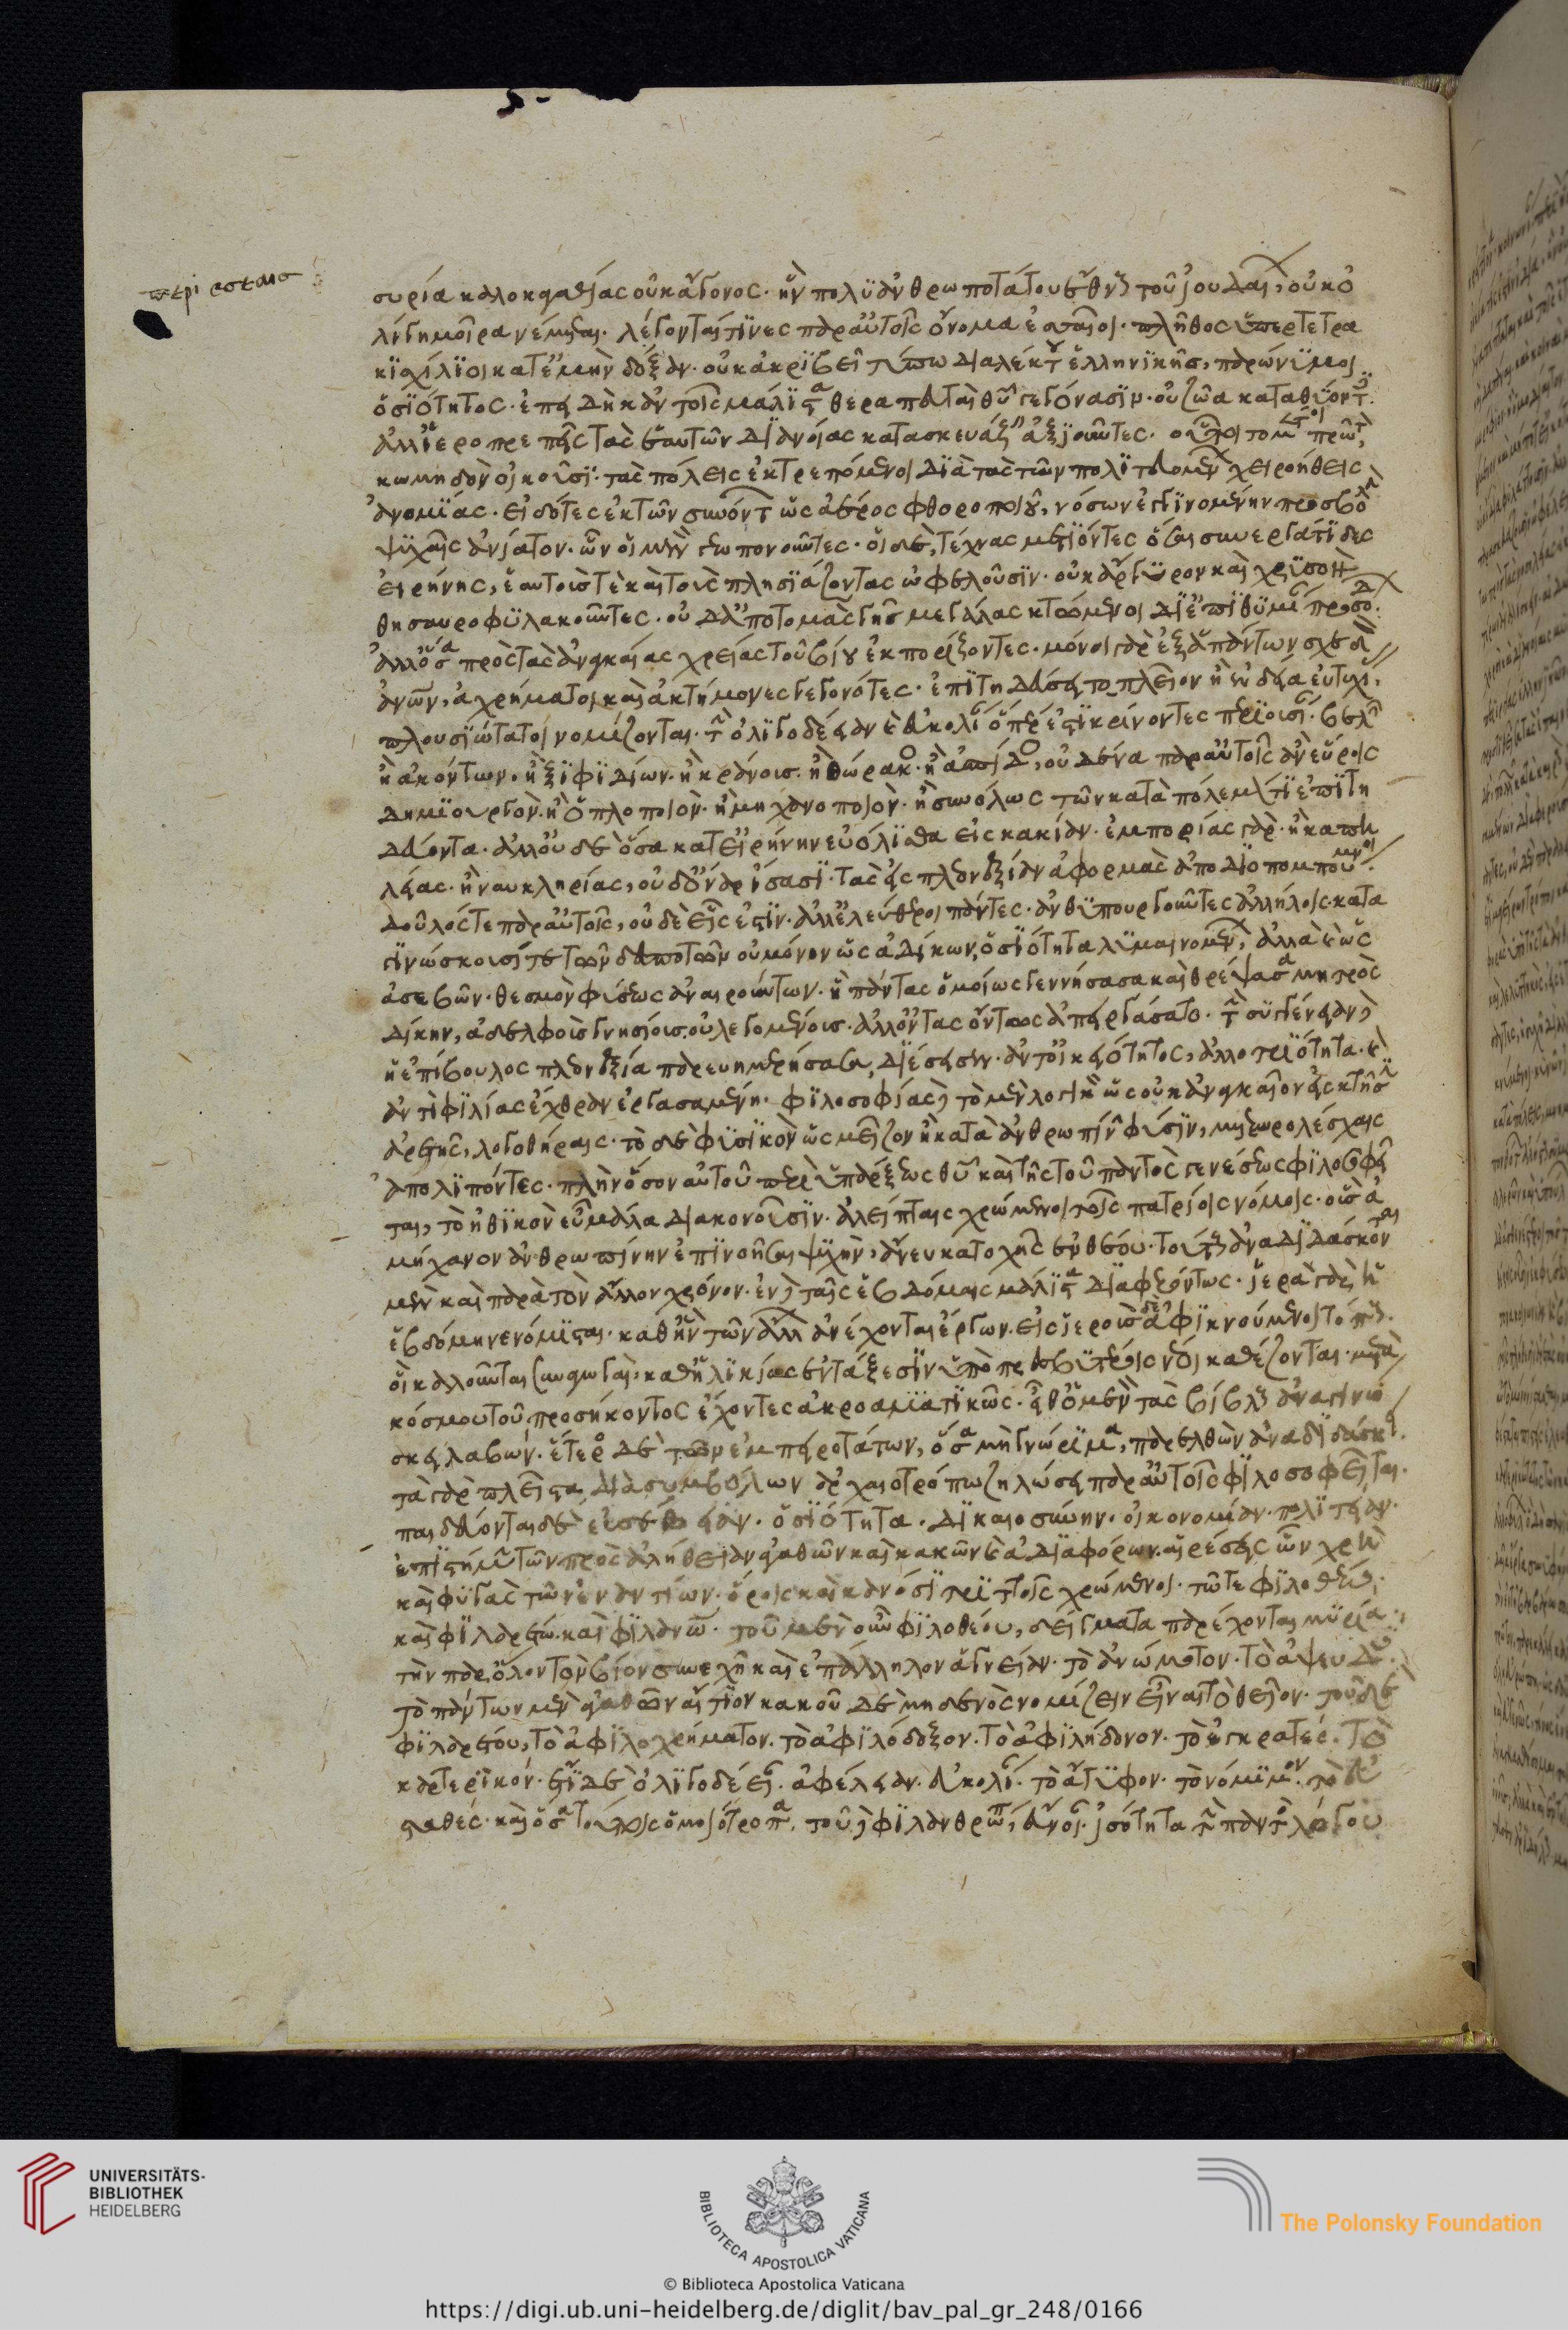 περὶ εσσαιων
συρία καλοκαγαθίας οὐκ ἄγονος· ἣν πολυανθρωποτάτου ἔθνους τοῦ ἰουδαί, οὐκ ὀ
λίγη μοῖρα νέμεται. λέγονται τινες παρ' αὐτοῖς ὄνομα ἐσσαῖοι· πλῆθος ὑπερτετρα
κισχίλιοι κατ' ἐμὴν δόξαν· οὐκ ἀκριβεῖ τύπω διαλέκτου ἑλληνικῆς, παρώνυμοι
ὁσιότητος· ἐπειδὴ κἀν τοῖς μάλιστα θεραπευταὶ θεοῦ γεγόνασιν· οὐ ζῶα καταθύοντες.
ἀλλ' ἱεροπρεπεῖς τὰς ἑαυτῶν διανοίας κατασκευάζειν ἀξιοῦντες. οὗτοι τὸ μὲν πρῶτον,
κωμηδὸν οἰκοῦσι· τὰς πόλεις ἐκτρεπόμενοι διὰ τὰς τῶν πολιτευομένων χειροήθεις
ἀνομίας· εἰδότες ἐκ τῶν συνόντων ὡς ἀέρος φθοροποιοῦ, νόσων ἐγγινομένην προσβολὴν
ψυχαῖς ἀνίατον· ὧν οἱ μὲν γεωπονοῦντες· οἱ δὲ, τέχνας μετιόντες ὅσαι συνεργάτιδες
εἰρήνης, ἑαυτοὺς τε καὶ τοὺς πλησιάζοντας ὠφελοῦσιν· οὐκ ἄργυρον καὶ χρυσὸν
θησαυροφυλακοῦντες· οὐδ' ἀποτομὰς γῆς μεγάλας κτώμενοι δι' ἐπιθυμίαν προσόδων.
ἀλλ' ὅσα πρὸς τὰς ἀναγκαίας χρείας τοῦ βίου ἐκπορίζοντες· μόνοι γὰρ ἐξ ἁπάντων σχεδὸν
ἀνθρώπων, ἀχρήματοι καὶ ἀκτήμονες γεγονότες· ἐπιτηδεύσει τὸ πλεῖον ἢ ἐνδεία εὐτυχίας,
πλουσιώτατοι νομίζονται· τὴν ὀλιγοδεΐαν καὶ εὐκολίαν ὅπερ ἐστὶ κρίνοντες περιουσίαν. βελῶν
ἢ ἀκόντων· ἢ ξιφιδίων· ἢ κράνους· ἢ θώρακος· ἢ ἀσπίδος, οὐδένα παρ' αὐτοῖς ἀν εὕροις
δημιουργὸν· ἢ ὁπλοποιὸν· ἢ μηχανοποιὸν· ἢ συνόλως τῶν κατὰ πόλεμόν τι ἐπιτη
δεύοντα· ἀλλ' οὐδὲ ὅσα κατ' εἰρήνην εὐόλισθα εἰς κακίαν· ἐμπορίας γὰρ· ἢ καπη
λείας· ἢ ναυκληρίας, οὐδ' ὄναρ ἴσασι· τὰς εἰς πλεονεξίαν ἀφορμὰς ἀποδιοπομπούμενοι.
δοῦλός τε παρ' αὐτοῖς, οὐδὲ εἷς ἐστίν· ἀλλ' ἐλεύθεροι πάντες· ἀνθυπουργοῦντες ἀλλήλοις· κατα
γινώσκουσί τε τῶν δεσποτῶν οὐ μόνον ὡς ἀδίκων, ὁσιότητα λυμαινομένων, ἀλλὰ καὶ ὡς
ἀσεβῶν· θεσμὸν φύσεως ἀναιρούντων· ἢ πάντας ὁμοίως γεννήσασα καὶ θρέψασα μητρὸς
δίκην, ἀδελφοὺς γνησίους· οὐ λεγομένους· ἀλλ' ὄντας ὄντως ἀπειργάσατο· τὴν συγγένειαν,
ἡ ἐπίβουλος πλεονεξία παρευημερήσασα, διέσεισεν· ἀντ' οἰκειότητος, ἀλλοτριότητα· καὶ
ἀντὶ φιλίας ἔχθραν ἐργασαμένη· φιλοσοφίας, τὸ μὲν λογικὸν ὡς οὐκ ἀναγκαῖον εἰς κτῆσιν
ἀρετῆς, λογοθήραις· τὸ δὲ φυσικὸν ὡς μεῖζον ἢ κατὰ ἀνθρωπίνην φύσιν, μετεωρολέσχαις
ἀπολιπόντες· πλὴν ὅσον αὐτοῦ περὶ ὑπάρξεως θεοῦ καὶ τῆς τοῦ παντὸς γενέσεως φιλοσοφεῖ
ται, τὸ ἠθικὸν εὖ μάλα διακονοῦσιν· ἀλείπταις χρώμενοι τοῖς πατρίοις νόμοις· οὓς ἀ
μήχανον ἀνθρωπίνην ἐπινοῆσαι ψυχὴν, ἄνευ κατοχῆς ἐνθέου· τούτους ἀναδιδάσκονται
μὲν καὶ παρὰ τὸν ἄλλον χρόνον· ἐν δὲ ταῖς ἑβδόμαις μάλιστα διαφερόντως· ἱερὰ γὰρ ἡ
ἑβδόμη νενόμισται· καθ' ἣν τῶν ἄλλων ἀνέχονται ἔργων· εἰς ἱεροὺς δὲ ἀφικνούμενοι τόπους.
οἳ καλοῦνται συναγωγαὶ, καθ' ἡλικίας ἐν τάξεσιν ὑπὸ πρεσβυτέροις νέοι καθέζονται· μετὰ
κόσμου τοῦ προσήκοντος ἔχοντες ἀκροατικῶς· εἶθ' ὁ μὲν τὰς βίβλους ἀναγινώ
σκει λαβών· ἕτερος δὲ τῶν ἐμπειροτάτων, ὅσα μὴ γνώριμα, παρελθὼν ἀναδιδάσκει.
τὰ γὰρ πλεῖστα διὰ συμβόλων ἀρχαιοτρόπω ζηλώσει παρ' αὐτοῖς φιλοσοφεῖται.
παιδεύονται δὲ εὐσέβειαν· ὁσιότητα· δικαιοσύνην· οἰκονομίαν· πολιτείαν·
ἐπιστήμην τῶν πρὸς ἀλήθειαν ἀγαθῶν καὶ κακῶν καὶ ἀδιαφόρων· αἱρέσεις ὧν χρὴ
καὶ φυγὰς τῶν ἐναντίων· ὅροις καὶ κανόσι τριττοῖς χρώμενοι· τῶ τε φιλοθέω,
καὶ φιλαρέτω· καὶ φιλανθρώπω· τοῦ μὲν οὖν φιλοθέου, δείγματα παρέχονται μυρία,
τὴν παρ' ὅλον τὸν βίον συνεχῆ καὶ ἐπάλληλον ἁγνείαν· τὸ ἀνώμοτον· τὸ ἀψευδὲς.
τὸ πάντων μὲν ἀγαθῶν αἴτιον κακοῦ δὲ μηδενὸς νομίζειν εἶναι τὸ θεῖον· τοῦ δὲ
φιλαρέτου, τὸ ἀφιλοχρήματον· τὸ ἀφιλόδοξον· τὸ ἀφιλήδονον· τὸ ἐγκρατές· τὸ
καρτερικόν· ἔτι δὲ ὀλιγοδεΐαν· ἀφέλειαν· εὐκολίαν· τὸ ἄτυφον· τὸ νόμιμον· τὸ εὐ
σταθές· καὶ ὅσα τούτοις ὁμοιότροπα. τοῦ δὲ φιλανθρώπου, εὔνοιαν· ἰσότητα τὴν παντὸς λόγου
UNIVERSITÄTS-
BIBLIOTHEK
HEIDELBERG
BIBLIOTECA APOSTOLICA VATICANA
The Polonsky Foundation
© Biblioteca Apostolica Vaticana
https://digi.ub.uni-heidelberg.de/diglit/bav_pal_gr_248/0166